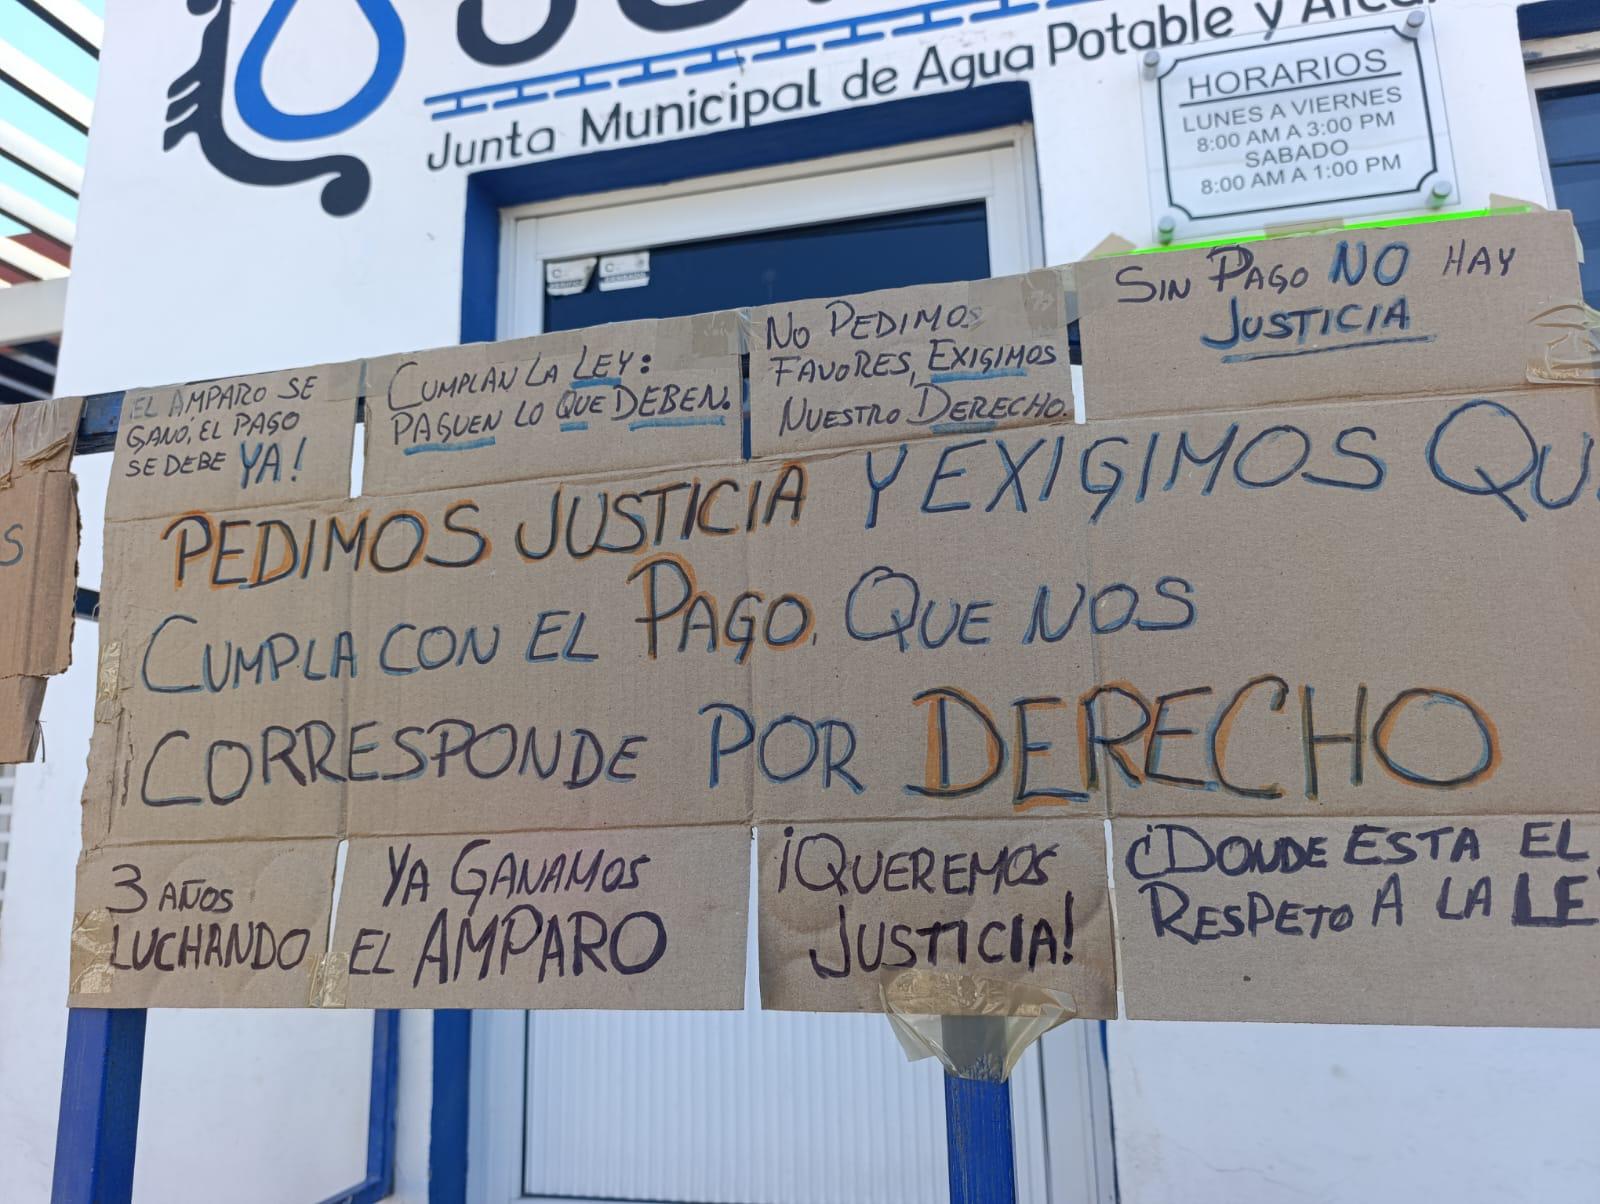 Junta Municipal de Agua Potable y
HORARIOS
LUNES A VIERNES
8:00 AM A 3:00 PM
SABADO
8:00 AM A 1:00 PM
EL AMPARO SE
GANÓ, EL PAGO
SE DEBE YA!
CUMPLAN LA LEY:
PAGUEN LO QUE DEBEN.
NO PEDIMOS
FAVORES, EXIGIMOS
NUESTRO DERECHO.
SIN PAGO NO HAY
JUSTICIA
PEDIMOS JUSTICIA Y EXIGIMOS QU
CUMPLA CON EL PAGO. QUE NOS
CORRESPONDE POR DERECHO
S
3 AÑOS
LUCHANDO
YA GANAMOS
EL AMPARO
¡QUEREMOS
JUSTICIA!
¿DONDE ESTA EL
RESPETO A LA LE